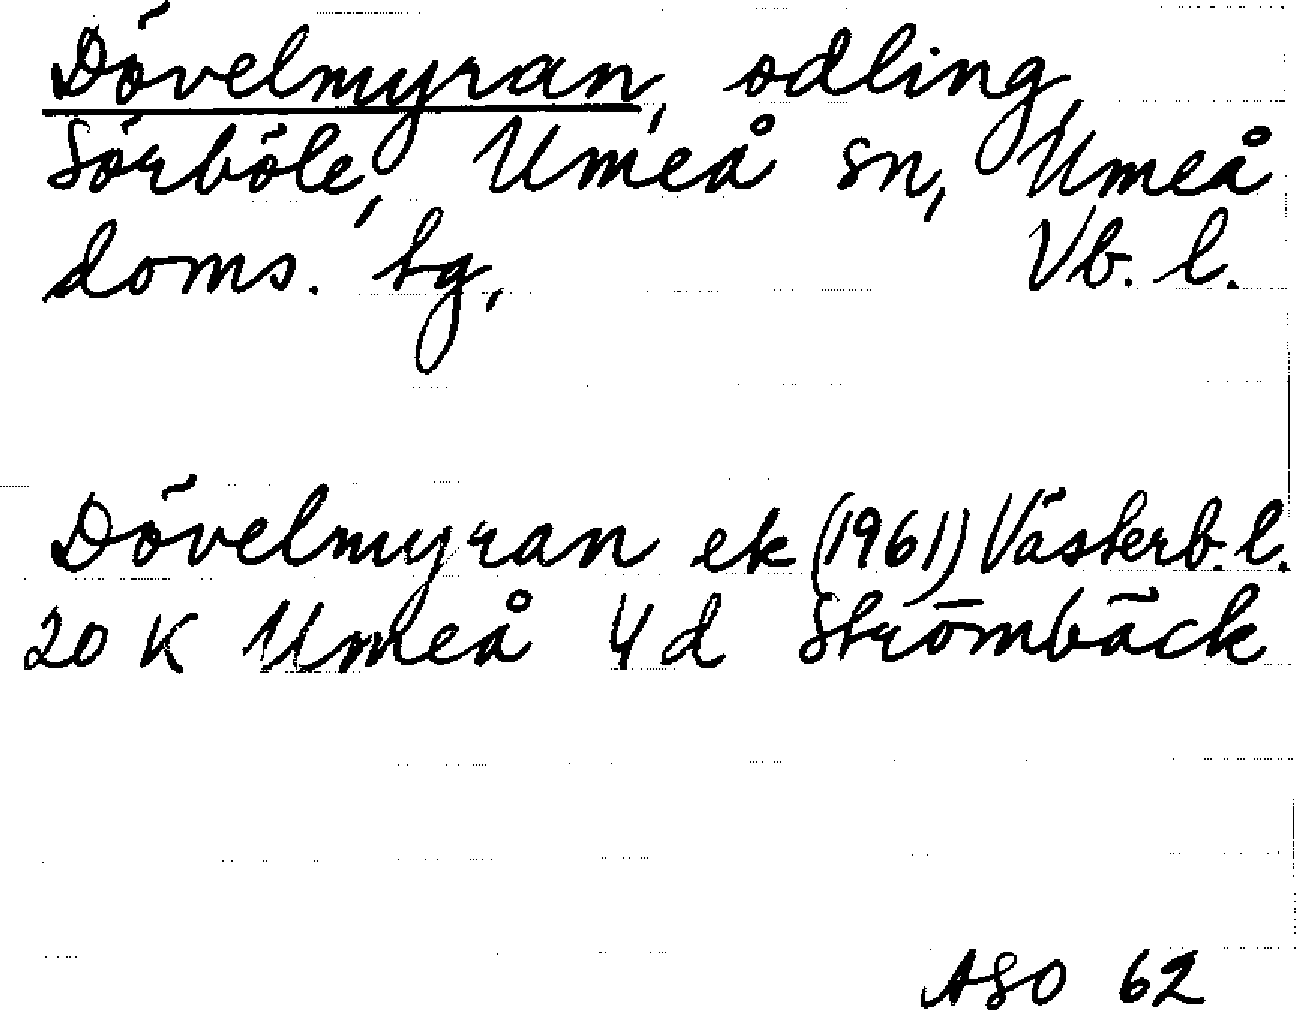 Dövelmyran, odling,
Sörböle, Umeå sn, Umeå
doms. tg, Vb. l.
Dövelmyran ek (1961) Västerb. l.
20 K Umeå 4 d Strömbäck
ASO 62